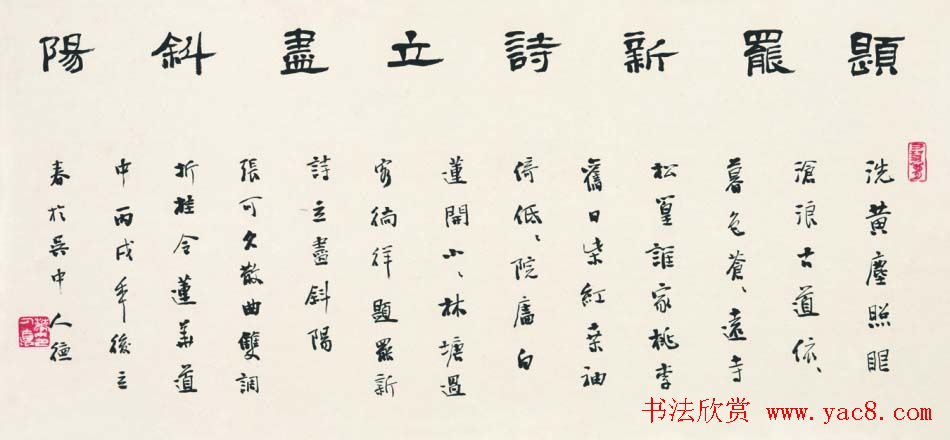 題罷新詩立盡斜陽
洗黃塵照眼
滄浪古道依〻
暮色蒼〻遠寺
松篁誰家桃李
舊日柴紅桒袖
倚低〻院廧白
蓮開小〻林塘過
客徜徉題罷新
詩立盡斜陽
張可久散曲雙調
折桂令蓮華道
中丙戌年後立
春於吳中人德
书法欣赏 www.yac8.com